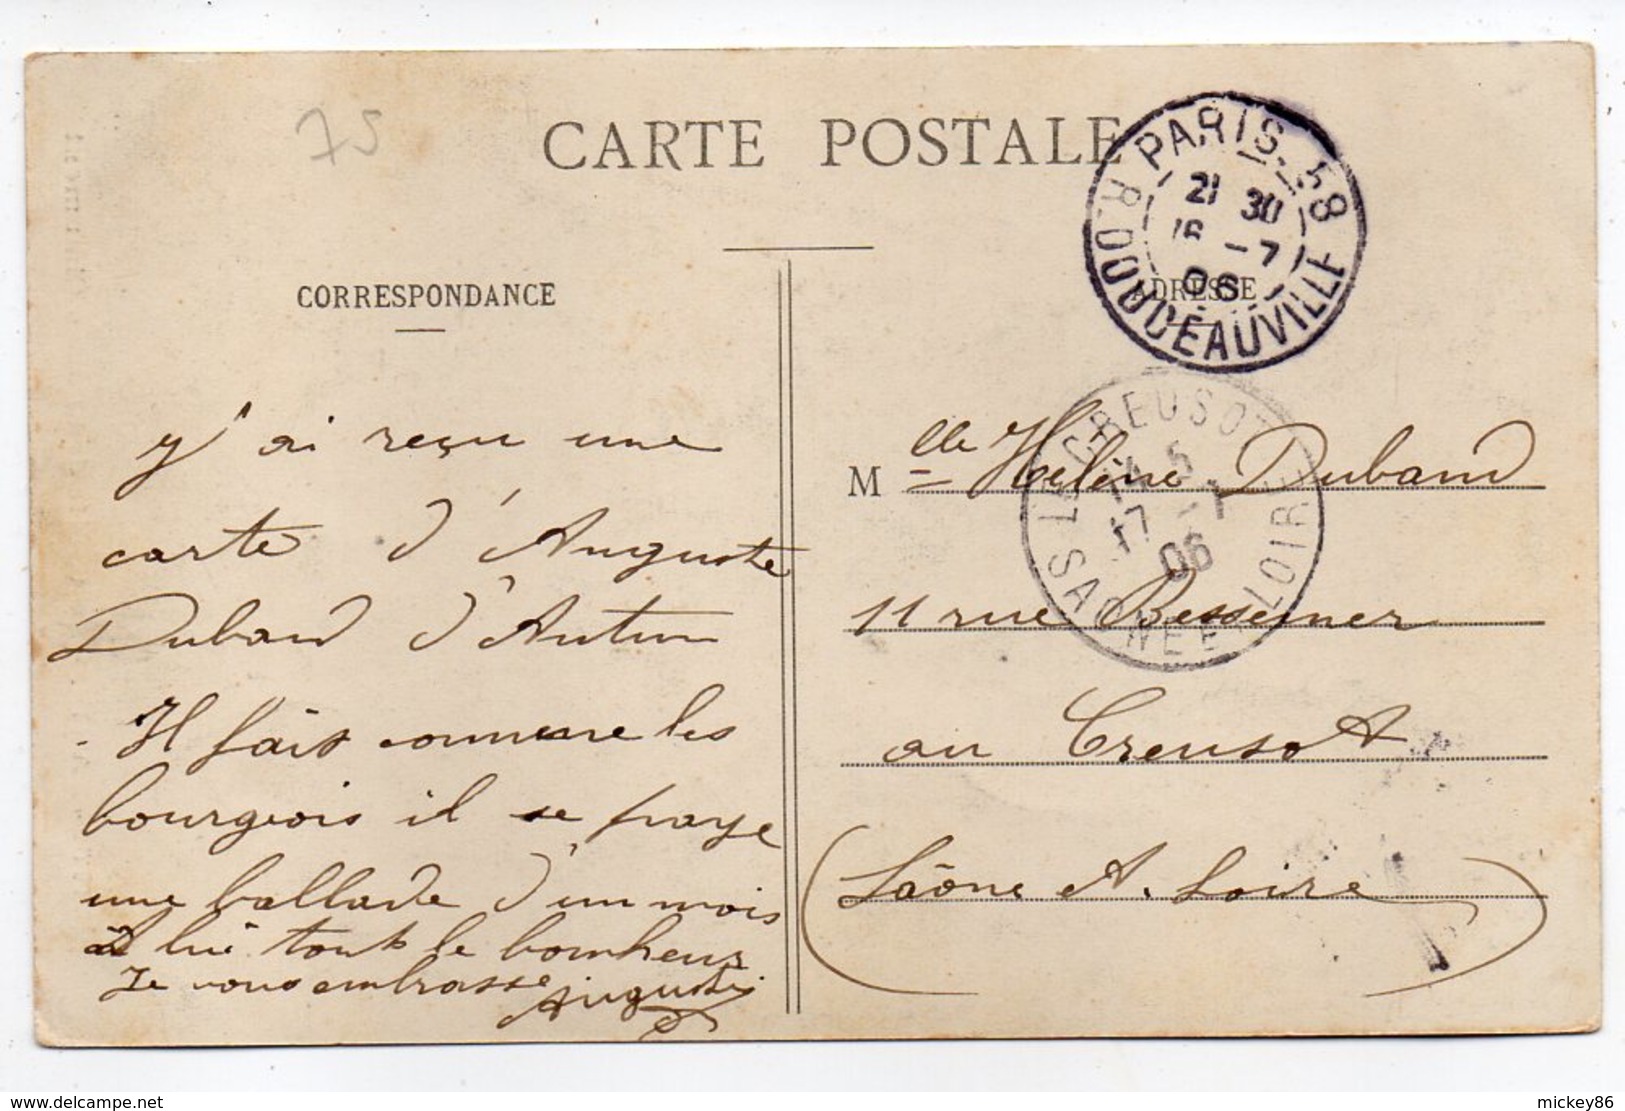 75
CARTE POSTALE
PARIS_58
21 30
16 -7
06
R. DOUDEAUVILLE
CORRESPONDANCE
ADRESSE
y'ai reçu une
carte d'Auguste
Duband d'Autun
Il fait comme les
bourgeois il se paye
une ballade d'un mois
à lui tout le bonheur
Je vous embrasse
Auguste
LE CREUSOT
17 -7
06
SAONE ET LOIRE
Mlle Hélène Duband
11 rue Bessemer
au Creusot
(Saône et Loire)
www.delcampe.net
mickey86